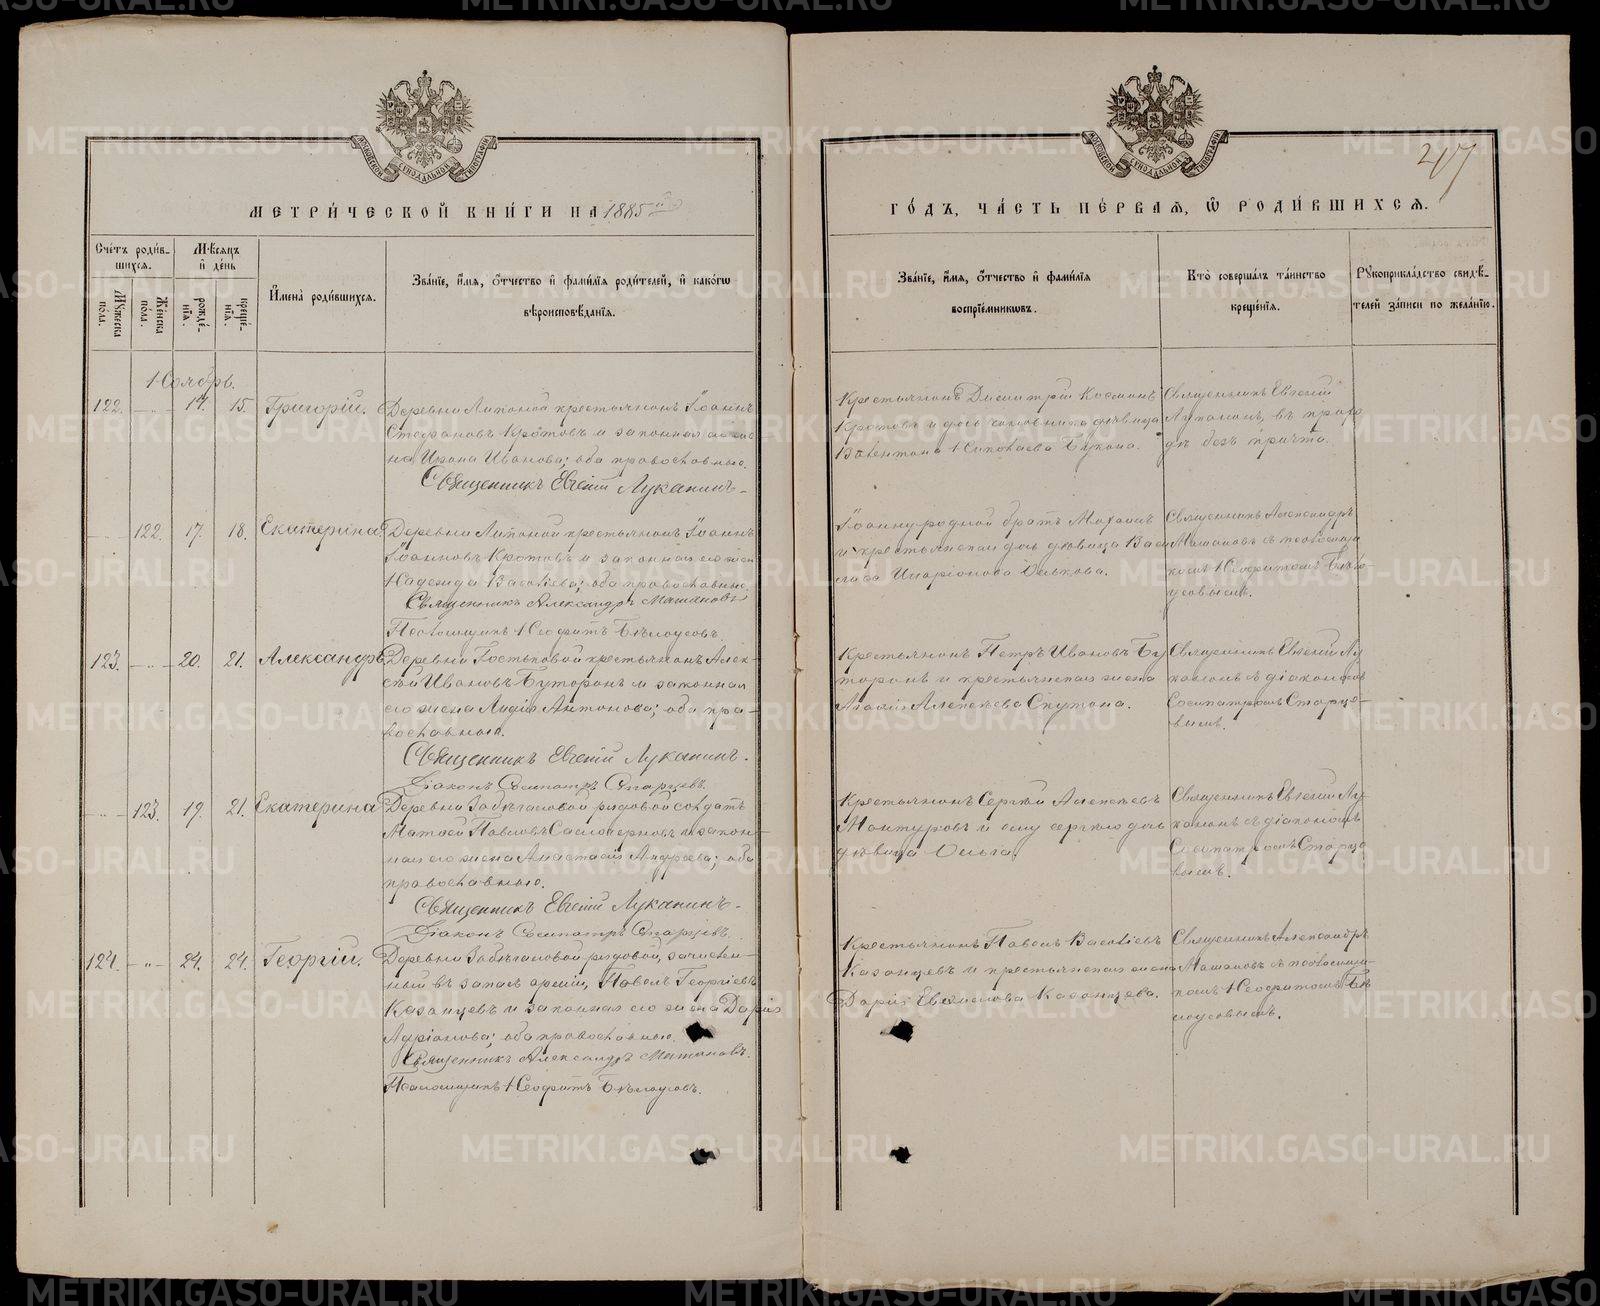 МЕТРИ́ЧЕСКОЙ КНИ́ГИ НА 1885й
Сче́тъ роди́в-
шихся.
Мѣсяцъ
и де́нь
Му́жеска
по́ла.
Же́нска
по́ла.
рожде́-
нїя.
креще́-
нїя.
И҆мена̀ роди́вшихся.
Зва́нїе, и҆́мя, о҆́тчество и҆ фами́лїя роди́телей, и҆ како́гѡ
вѣроисповѣ́данїя.
Ноябрь.
122. 15. Григорій.
Деревни Липовой крестьянинъ Іоаннъ
Стефановъ Кротовъ и законная его же
на Ирина Иванова; оба православные.
Священникъ Евгеній Луканинъ.
122. 17. 18. Екатерина.
Деревни Липовой крестьянинъ Іоаннъ
Іоанновъ Кротовъ и законная его жена
Надежда Васильева; оба православные.
Священникъ Александръ Машановъ
Псаломщикъ Неофитъ Бѣлоусовъ.
123. 20. 21. Александръ.
Деревни крестьянинъ Алек-
сѣй Ивановъ Буторинъ и законная
его жена Лидія Антонова; оба пра-
вославные.
Священникъ Евгеній Луканинъ.
Діаконъ Сосипатръ Старцевъ.
123. 19. 21. Екатерина
Деревни рядовой солдатъ
Матѳей Павловъ и закон-
ная его жена Анастасія Андреева; оба
православные.
Священникъ Евгеній Луканинъ.
Діаконъ Сосипатръ Старцевъ.
124. 24. 24. Георгій.
Деревни рядовой, зачислен-
ный въ запасъ арміи, Павелъ Георгіевъ
Казанцевъ и законная его жена Дарія
Адріанова; оба православные.
Священникъ Александръ Машановъ.
Псаломщикъ Неофитъ Бѣлоусовъ.
ГО́ДЪ, ЧА́СТЬ ПЕ́РВАЯ, Ѡ РОДИ́ВШИХСЯ.
Зва́нїе, и҆́мя, о҆́тчество и҆ фами́лїя
воспрїе́мникѡвъ.
Кто̀ соверша́лъ та́инство
креще́нїя.
Рꙋкоприкла́дство свидѣ́-
телей за́писи по жела́нїю.
Крестьянинъ Димитрій Косминъ
Кротовъ и дочь чиновника дѣвица
Валентина Николаева
Священникъ Евгеній
Луканинъ, въ прихо
дѣ безъ причта.
Іоанну родной братъ Михаилъ
и крестьянская дочь дѣвица Васи
лиса Иларіонова
Священникъ Александръ
Машановъ съ псаломщи
комъ Неофитомъ Бѣло
усовымъ.
Крестьянинъ Петръ Ивановъ Бу
торинъ и крестьянская жена
Алексѣева
Священникъ Евгеній Лу
канинъ съ діакономъ
Сосипатромъ Старце-
вымъ.
Крестьянинъ Сергѣй Алексѣевъ
Мантуровъ и ему Сергѣю дочь
дѣвица Ольга.
Священникъ Евгеній Лу
канинъ съ діакономъ
Сосипатромъ Старце
вымъ.
Крестьянинъ Павелъ Васильевъ
Казанцевъ и крестьянская жена
Дарія Казанцева.
Священникъ Александръ
Машановъ съ псаломщи-
комъ Неофитомъ Бѣ
лоусовымъ.
METRIKI.GASO-URAL.RU